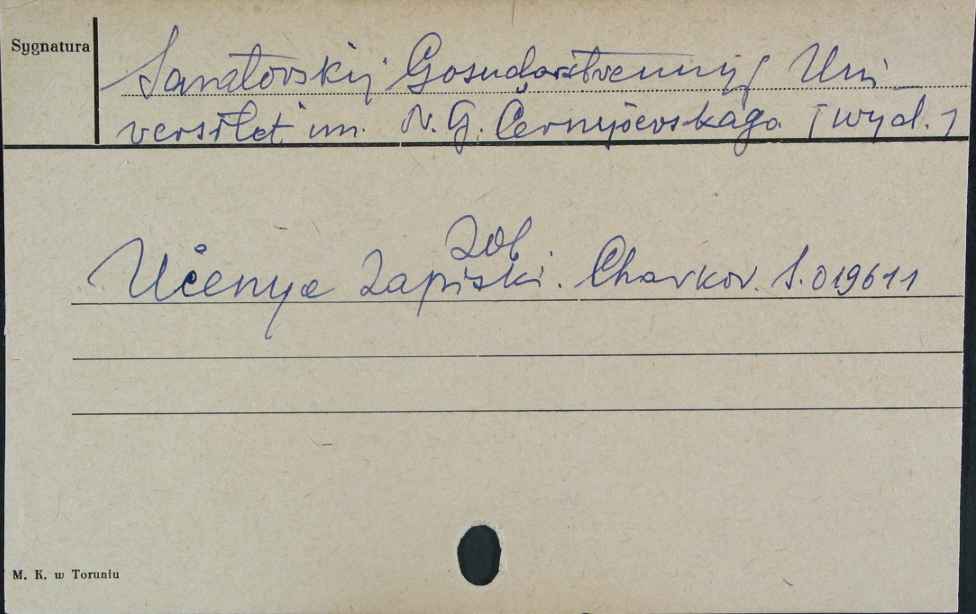 Sygnatura
Saratovskij Gosudarstvennyj Uni
versitet im. N. G. Černyševskago [wyd.]
zob.
Učenye zapiski. Charkov. S.019611
M. K. w Toruniu